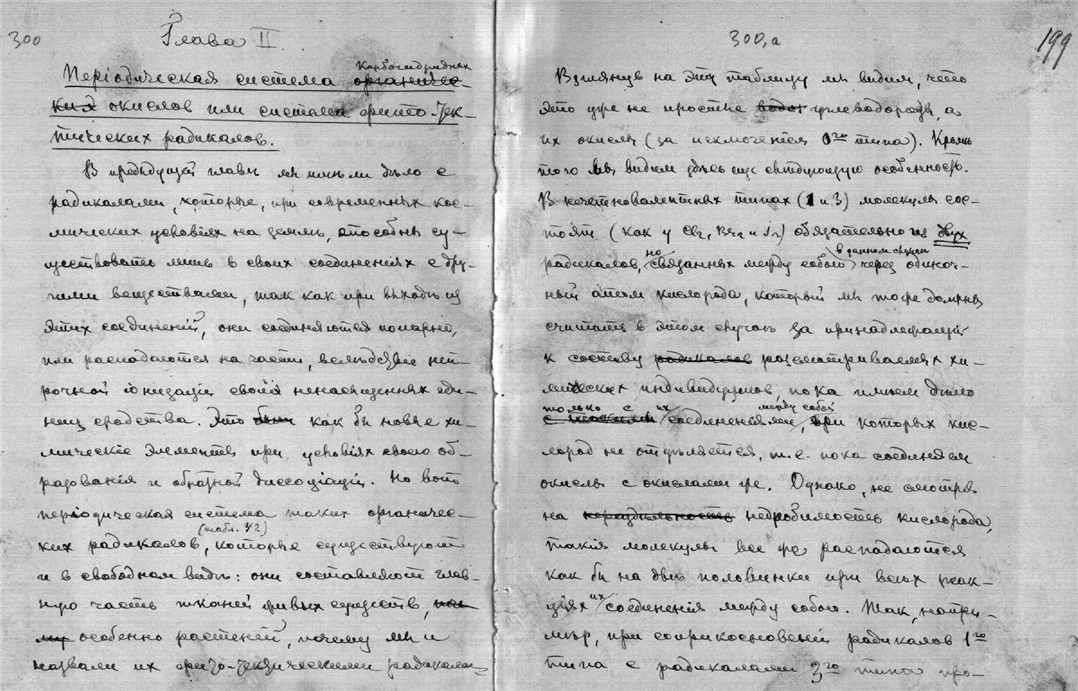 300
Глава II.
Карбогидридных
Періодическая система органичес-
ких окислов или система фито-зек-
тических радикалов.
В предъидущей главѣ мы имѣли дѣло с
радикалами, которые, при современных кос-
мических условіях на землѣ, способны су-
ществовать лишь в своих соединеніях с дру-
гими веществами, так как при выходѣ из
этих соединеній, они соединяются попарно,
или распадаются на части, вслѣдствіе неп
рочной іонизаціи своих ненасыщенных еди-
ниц сродства. Это были как бы новые хи-
мическіе элементы при условіях своего об-
разованія и обратной диссоціаціи. Но вот
періодическая система таких органичес-
(табл. 42)
ких радикалов, которые существуют
и в свободном видѣ: они составляют глав-
ную часть тканей живых существ,
особенно растеній, почему мы и
назвали их радикалами
300,а
199
Взглянув на эту таблицу мы видим, что
это уже не простые водор углеводороды, а
их окислы (за исключеніем 0го типа). Кромѣ
того мы видим здѣсь еще слѣдующую особенность.
В нечетновалентных типах (1 и 3) молекулы сос-
тоят (как у Cl2, Br2 и J2) обязательно из двух
но в данном случаѣ
радикалов, связанных между собою через одиноч-
ный атом кислорода, который мы тоже должны
считать в этом случаѣ за принадлежащій
к составу радикалов разсматриваемых хи-
мических индивидуумов, пока имѣем дѣло
только с их между собой
соединеніями, при которых кис-
лород не отдѣляется, т.е. пока соединяем
окислы с окислами же. Однако, не смотря
на нераздѣльность недробимость кислорода,
такія молекулы все же распадаются
как бы на двѣ половинки при всѣх реак-
ціях их соединенія между собою. Так, напри-
мѣр, при соприкосновеніи радикалов 1го
типа с радикалами 3го типа про-